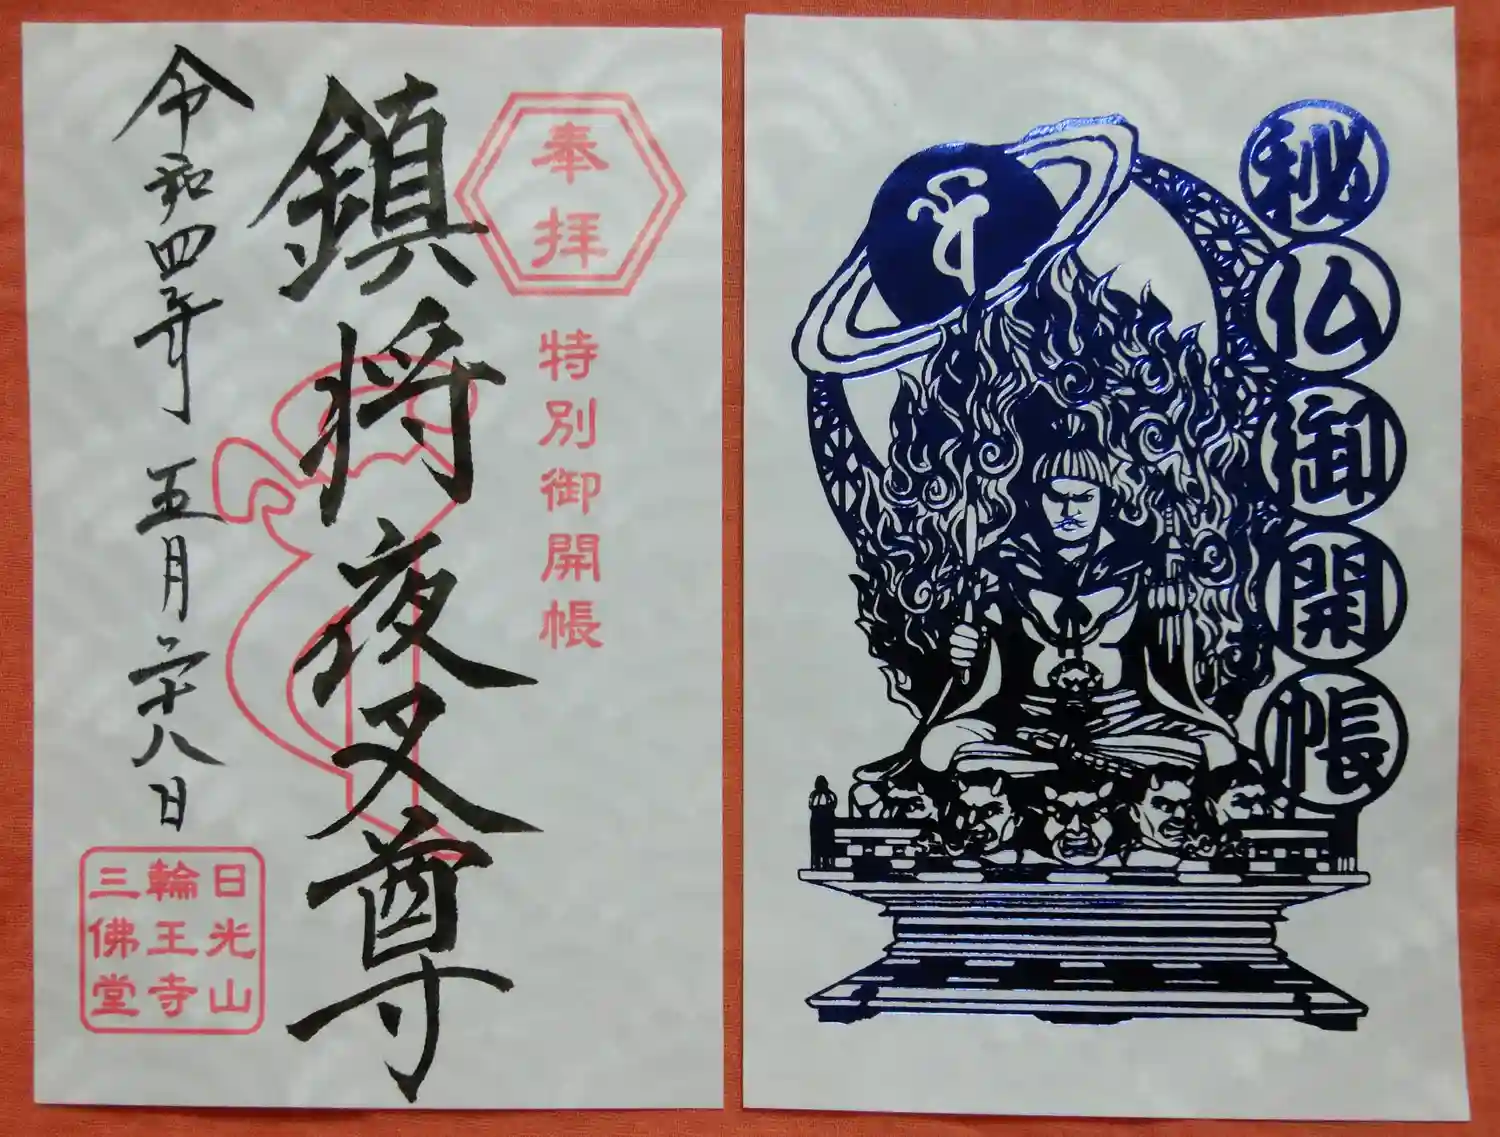 奉拝
特別御開帳
鎮将夜叉尊
令和四年 五月二十八日
日光山
輪王寺
三佛堂
秘仏御開帳